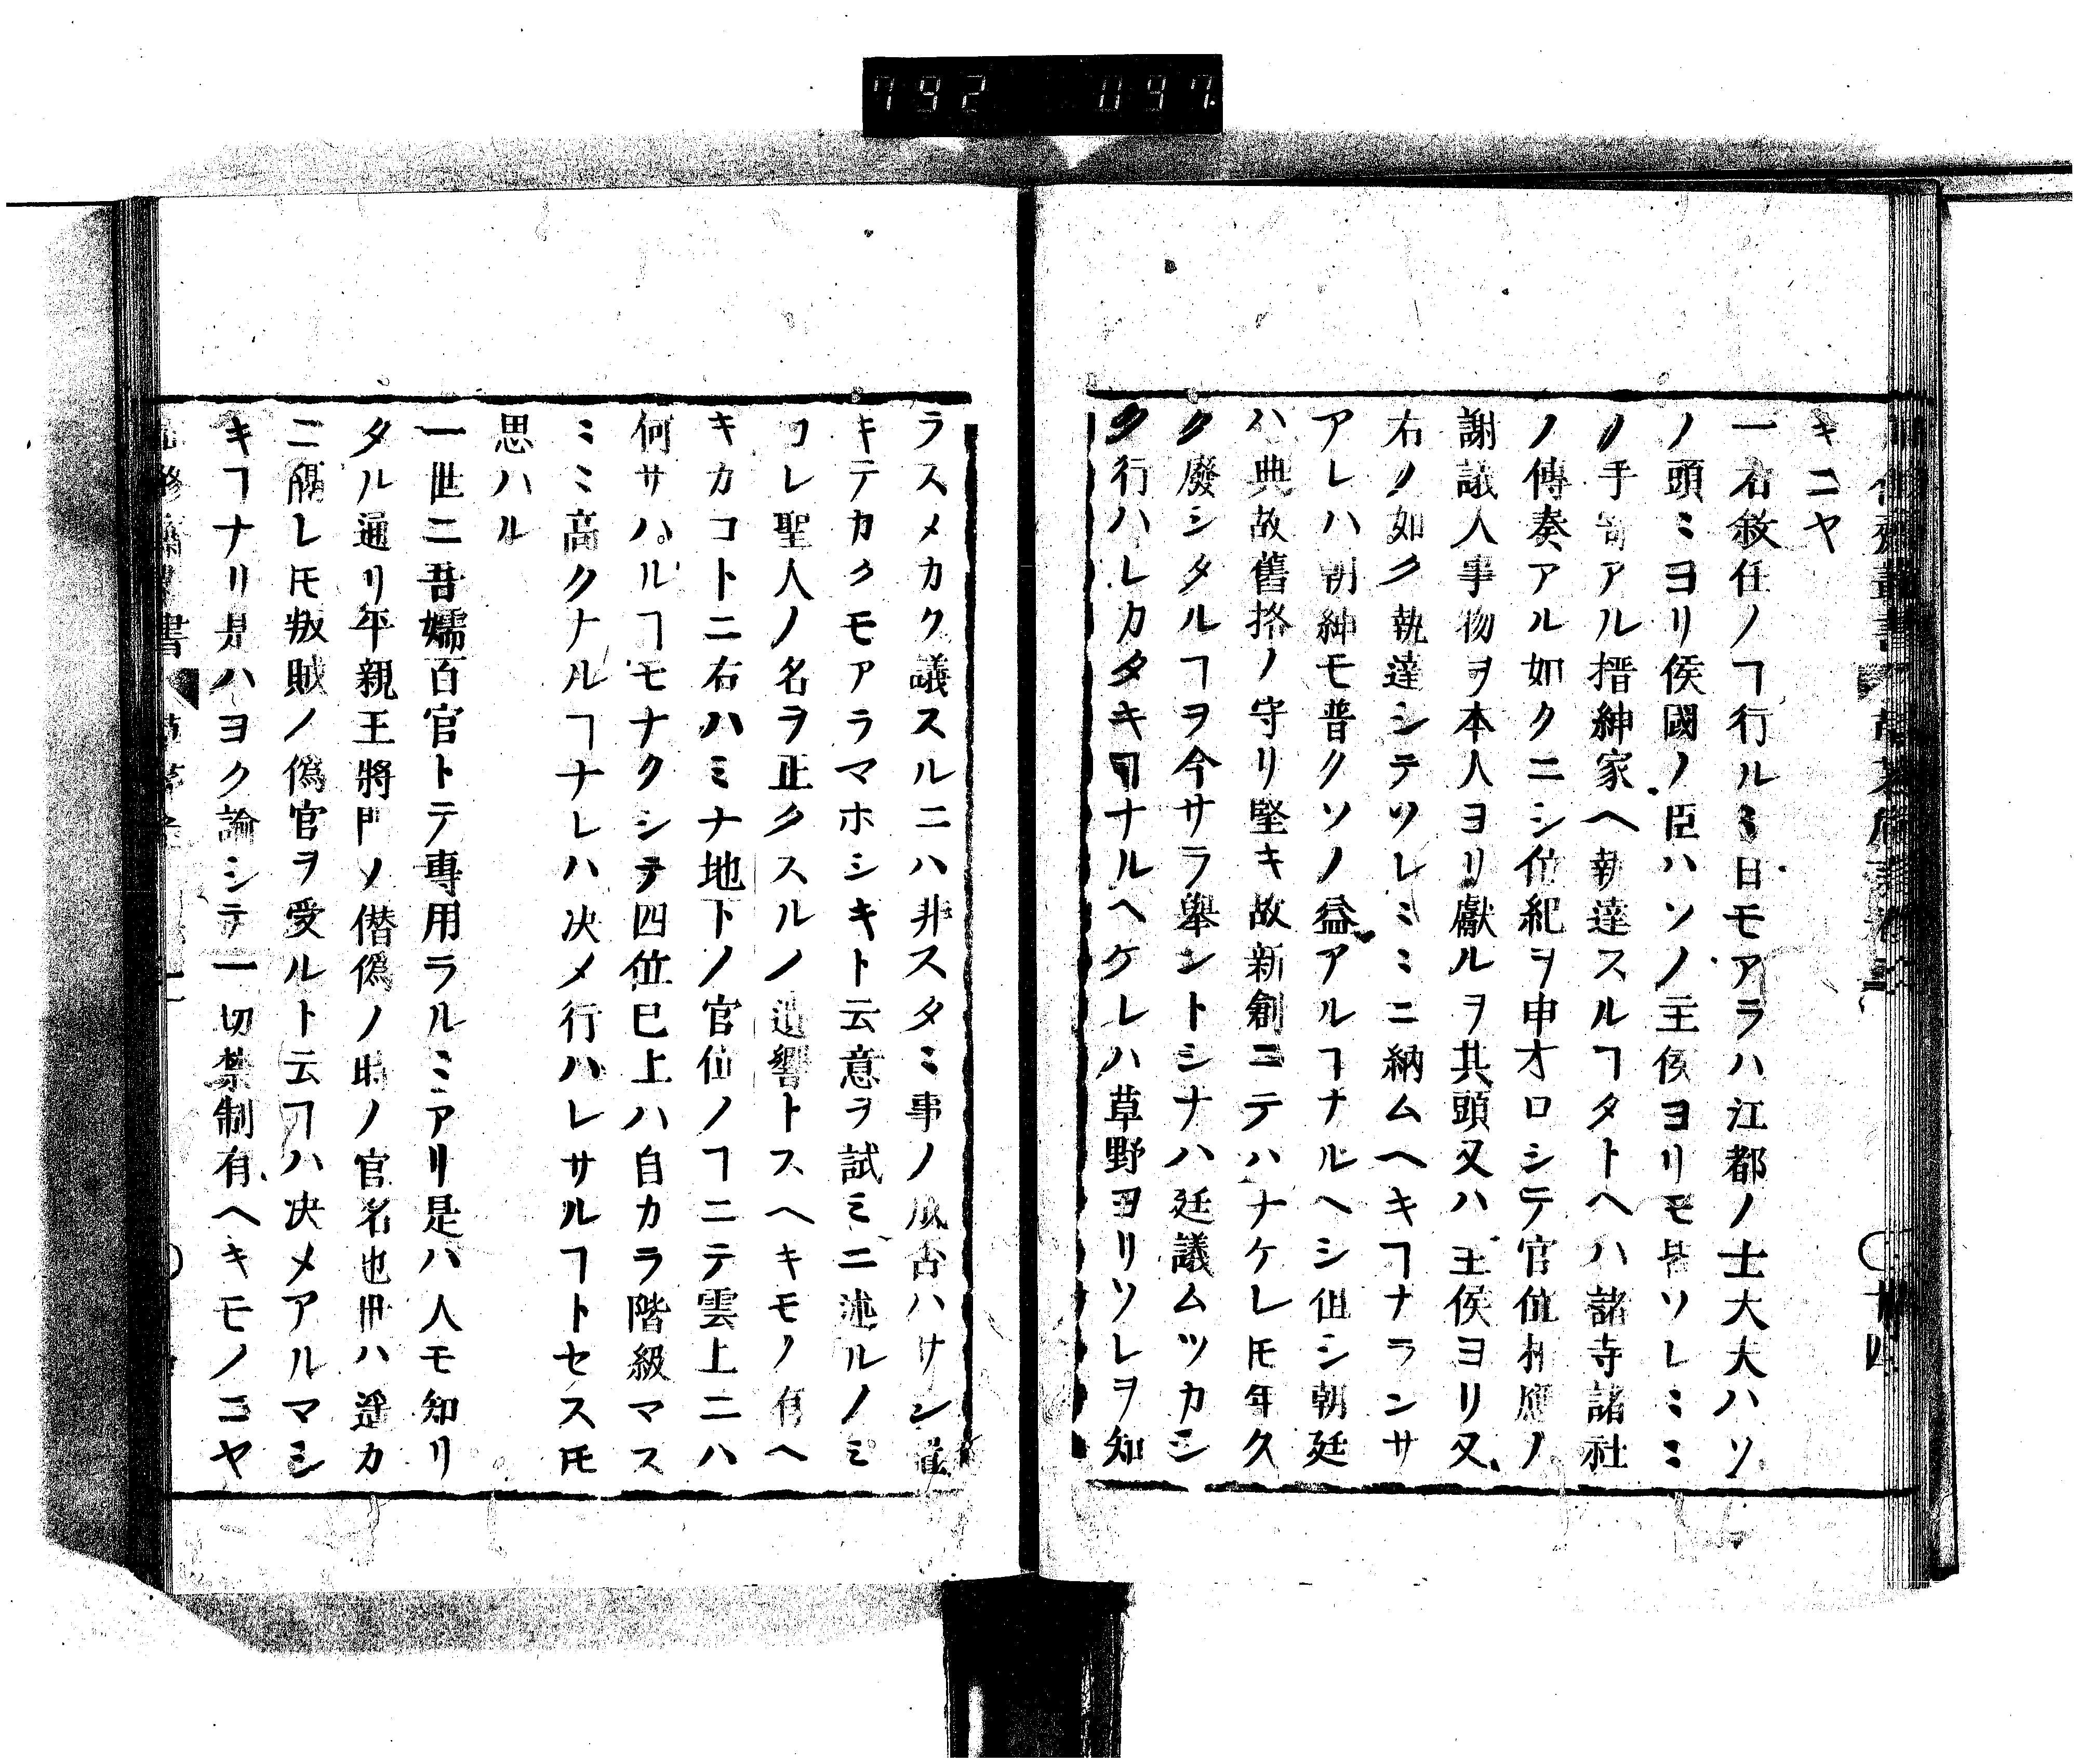 792 097
キニヤ
一右敘任ノヿ行ルミ日モアラハ江都ノ士大夫ハソ
ノ頭ミヨリ侯國ノ臣ハソノ主侯ヨリモ皆ソレミミ
ノ手寄アル搢紳家ヘ執達スルヿタトヘハ諸寺諸社
ノ傳奏アル如クニシ位紀ヲ申オロシテ官位相應ノ
謝議人事物ヲ本人ヨリ獻ルヲ其頭又ハ主侯ヨリ又
右ノ如ク執達シテソレミミニ納ムヘキヿナランサ
アレハ朝紳モ普クソノ益アルヿナルヘシ但シ朝廷
ハ典故舊格ノ守リ堅キ故新創ニテハナケレ𪜈年久
ク廢シタルヿヲ今サラ舉ントシナハ廷議ムツカシ
ク行ハレカタキヿナルヘケレハ草野ヨリソレヲ知
ラスメカク議スルニハ非スタミ事ノ成否ハサシ置
キテカクモアラマホシキト云意ヲ試ミニ述ルノミ
コレ聖人ノ名ヲ正クスルノ遺響トスヘキモノ有ヘ
キカコトニ右ハミナ地下ノ官位ノヿニテ雲上ニハ
何サハルヿモナクシテ四位已上ハ自カラ階級マス
ミミ高クナルヿナレハ决メ行ハレサルヿトセス𪜈
思ハル
一世ニ吾嬬百官トテ専用ラルミアリ是ハ人モ知リ
タル通リ平親王將門ソ僣僞ノ時ノ官名也世ハ遥カ
ニ隔レ𪜈叛賊ノ僞官ヲ受ルト云ヿハ决メアルマシ
キヿナリ是ハヨク諭シテ一切禁制有ヘキモノニヤ